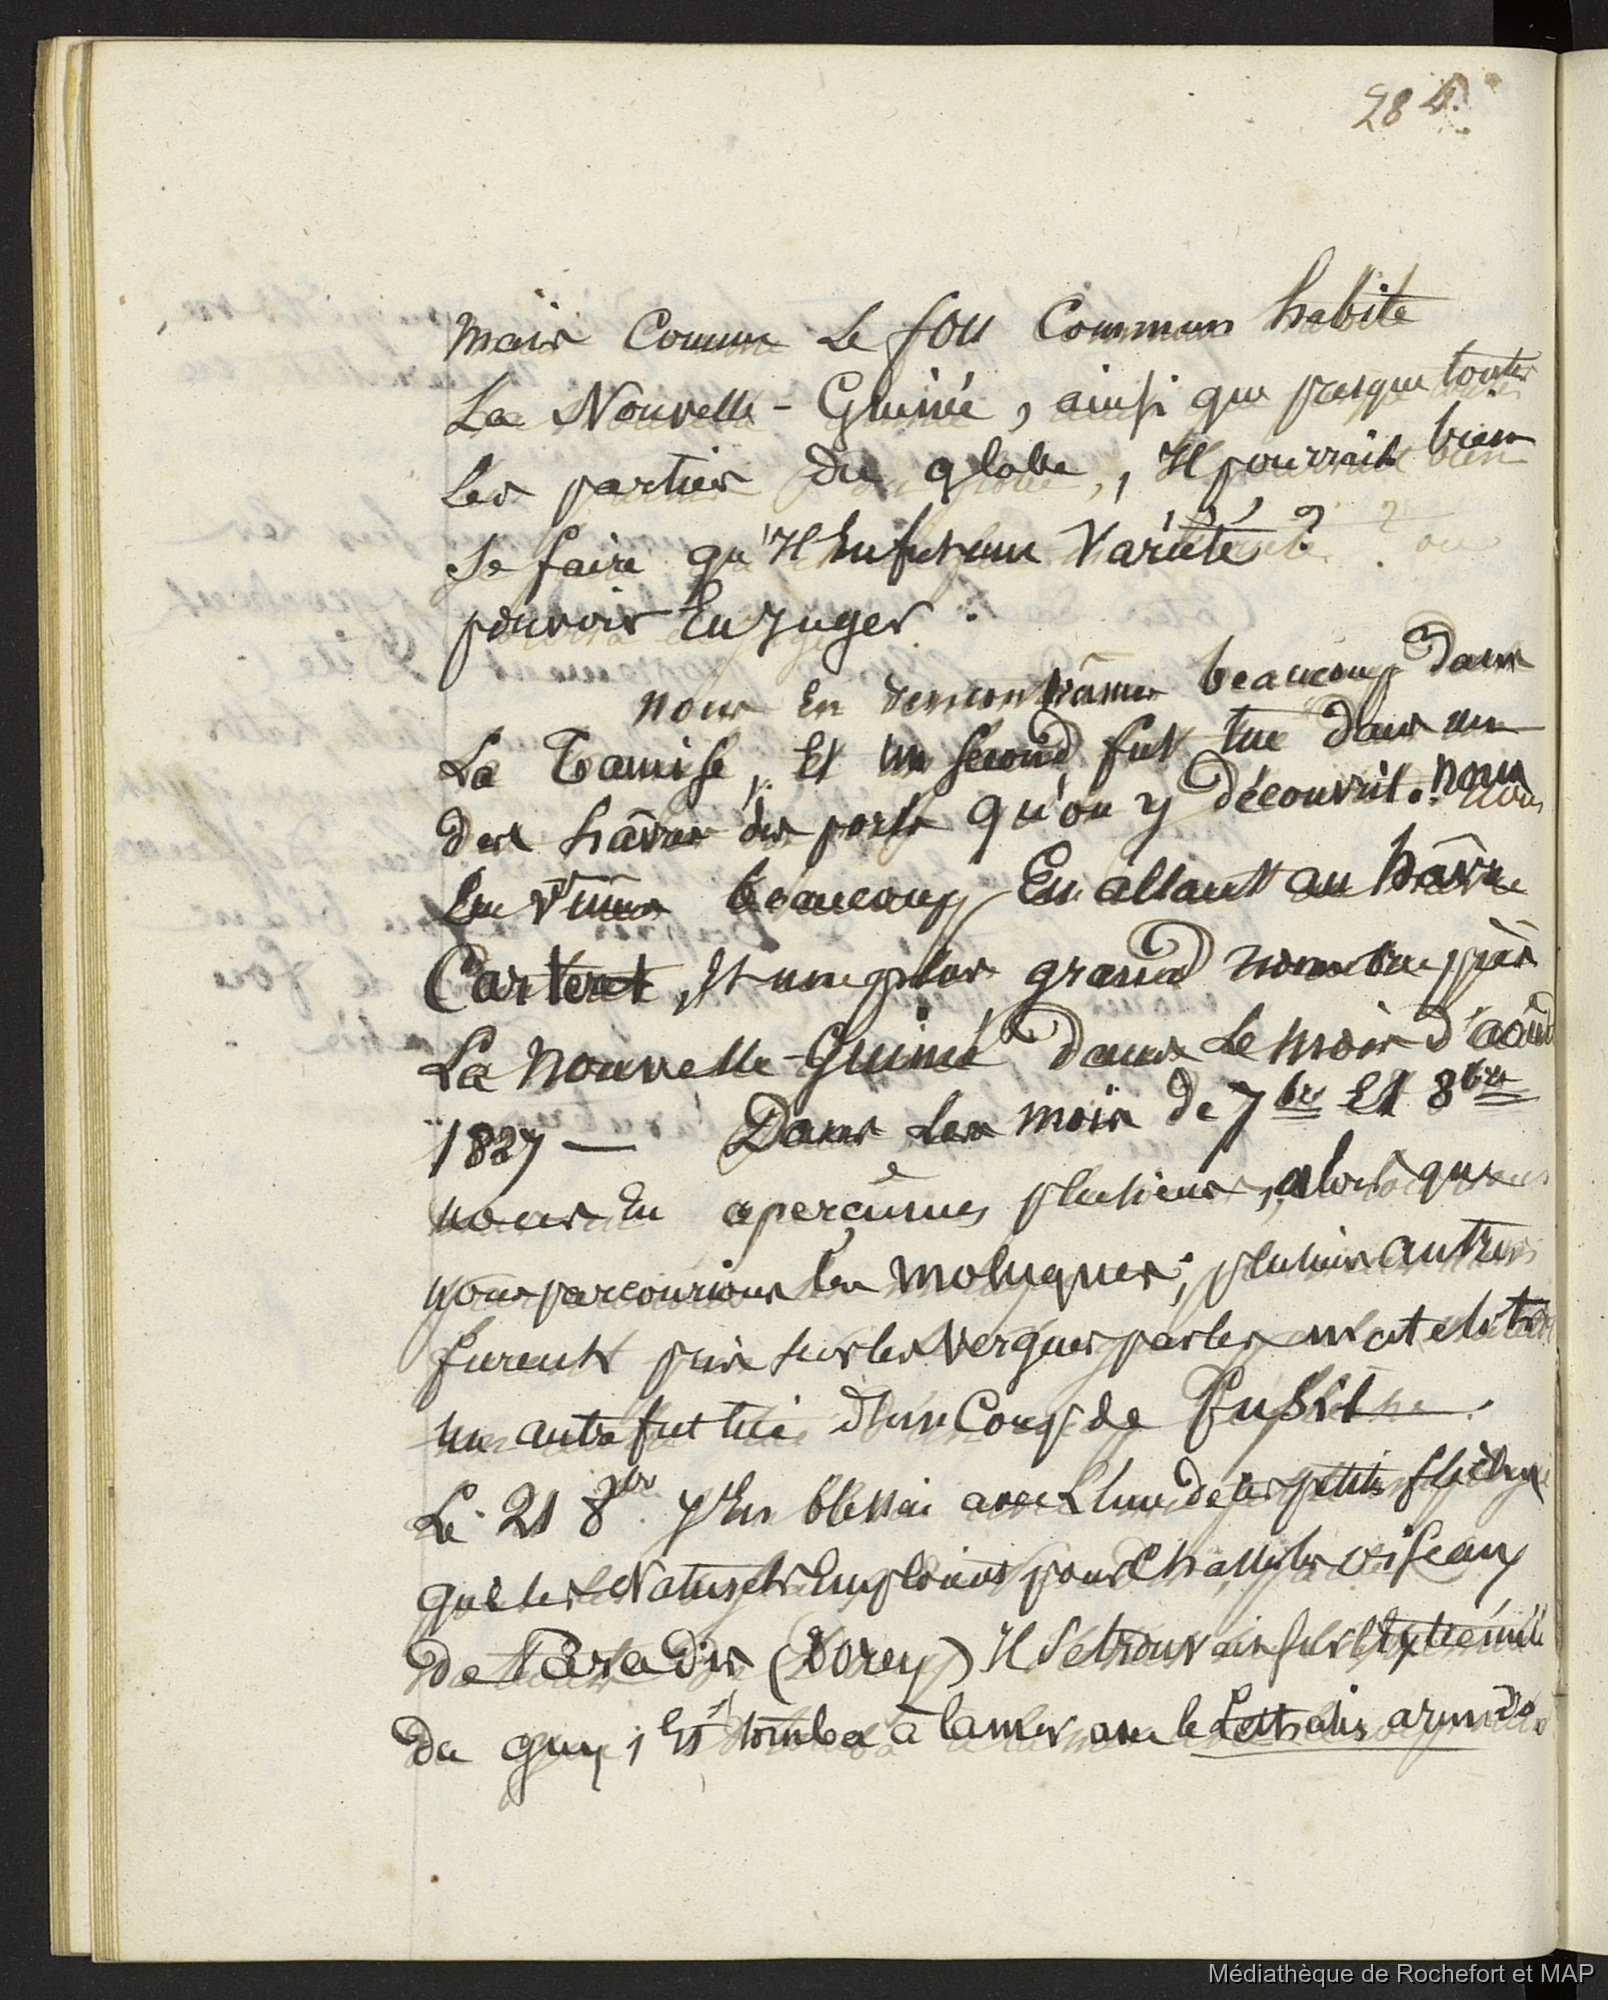 284.
mais Comme Le fou Commun habite
La Nouvelle-Guinée, ainsi que presque toutes
Les parties du globe, Il pourrait bien
se faire qu'Il En fut une Variété ?
pouvoir En Juger.
nous En rencontrâmes beaucoup Dans
La Tamise, Et un second fut tué dans un
des hâvres des ports qu'on y découvrit. nous
En vîmes beaucoup En allant au hâvre
Carteret, Et un plus grand nombre près
La Nouvelle-Guinée dans Le mois d'août
1827 — Dans Les mois de 7bre Et 8bre
nous En aperçûmes plusieurs, alors que
nous parcourions les moluques; plusieurs autres
furent pris sur les vergues par les matelots
un autre fut tué d'un Coup de Fusil.
Le 21 8bre J'En blessai avec L'une de ces petites flèches
que les Naturels Emploient pour Chasser les oiseaux
de Paradis (Dorey) Il se trouvait sur L'Extrémité
du guy; Et tomba à la mer avec le